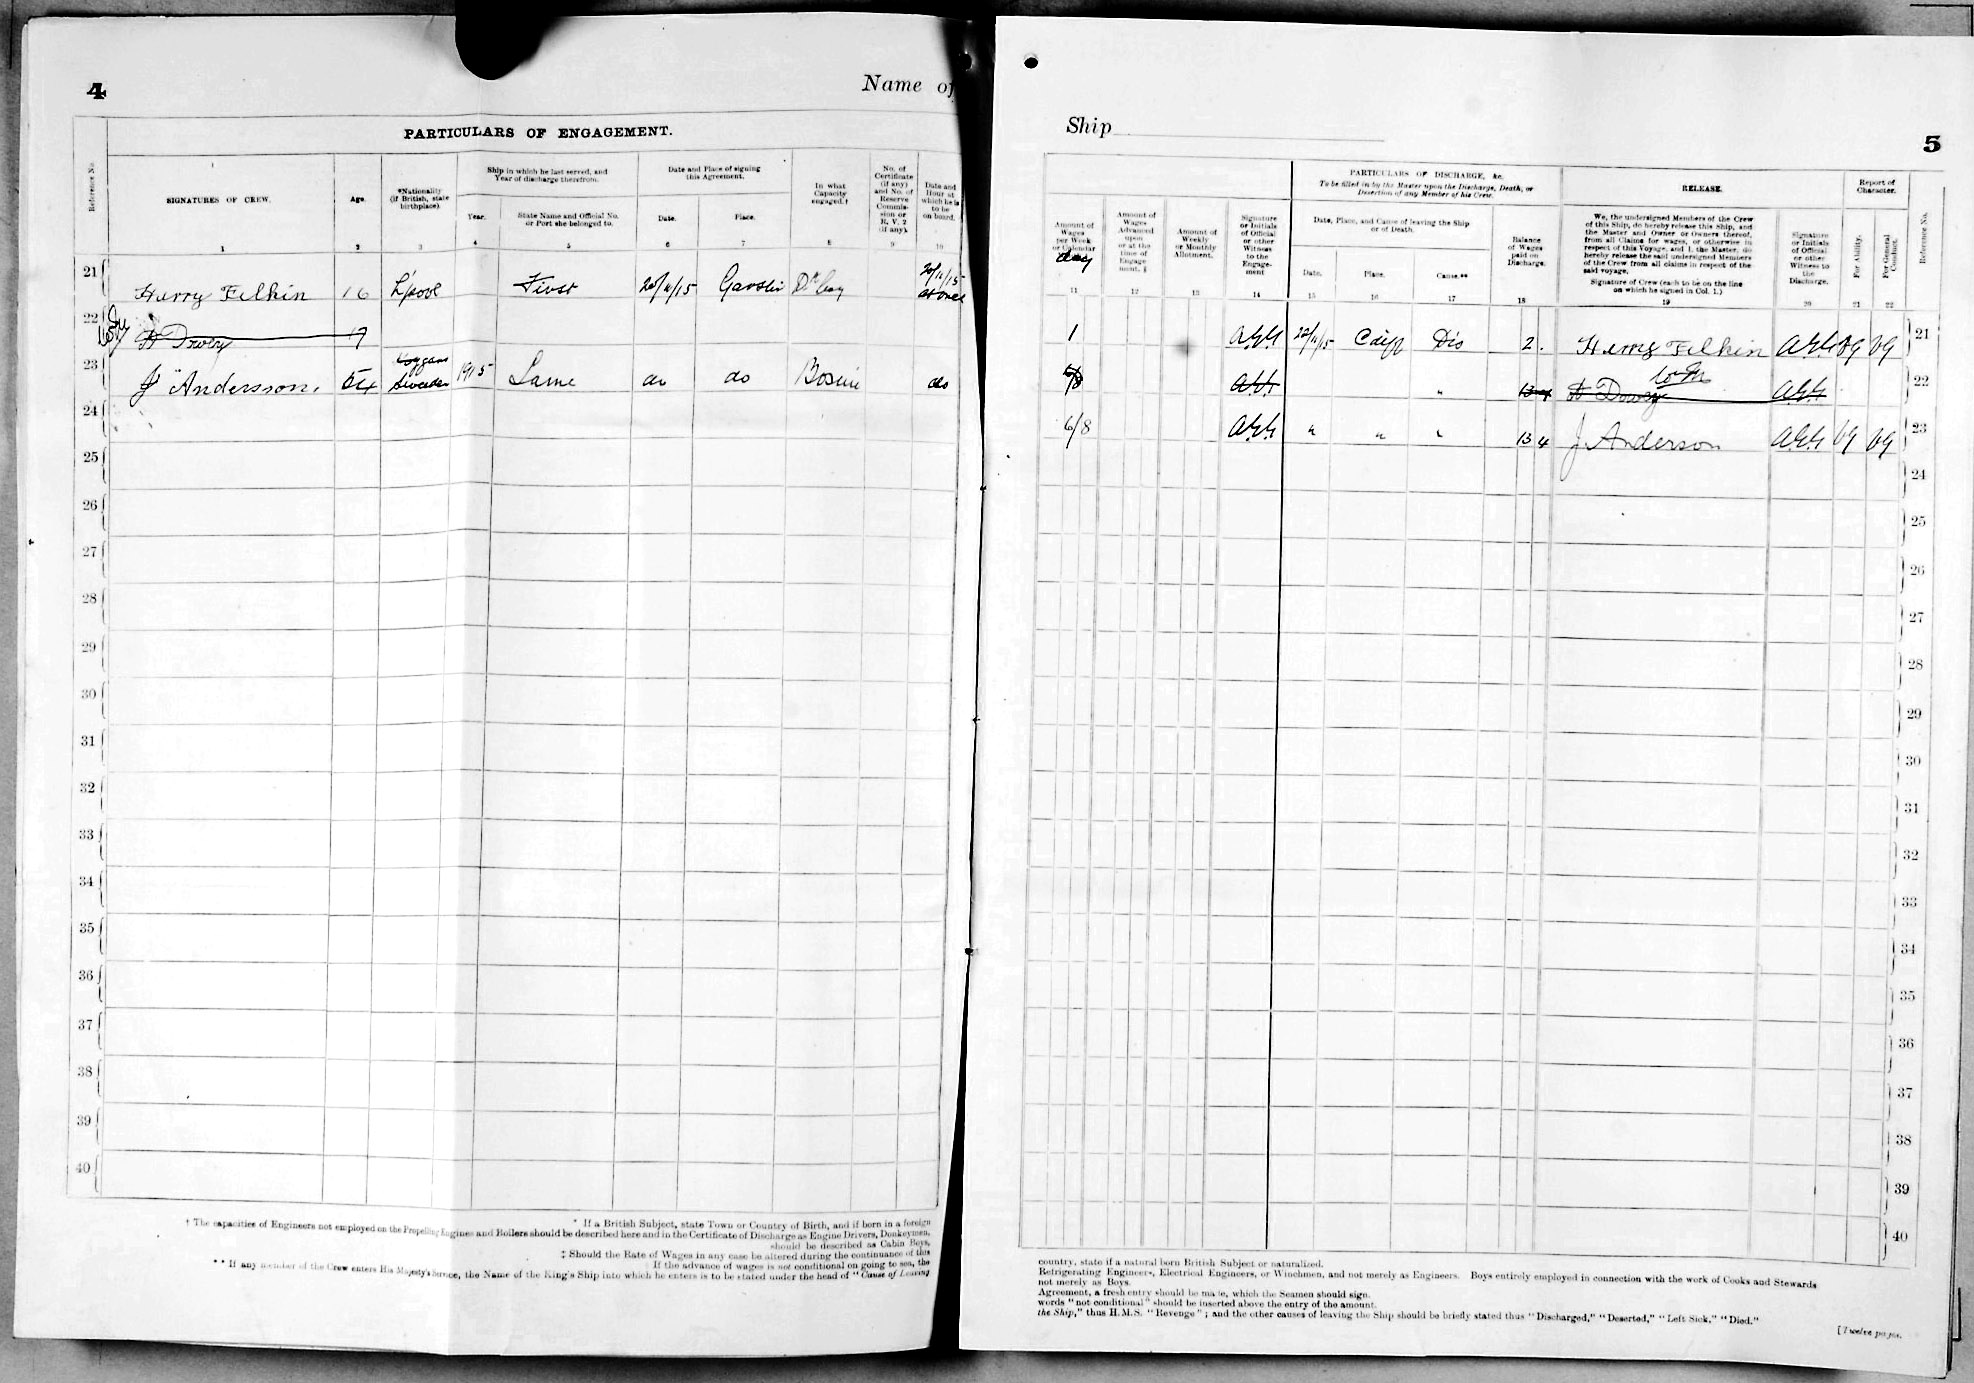 4
Name of
PARTICULARS OF ENGAGEMENT.
Reference No.
SIGNATURES OF CREW.
Age.
*Nationality
(if British, state
birthplace).
Ship in which he last served, and
Year of discharge therefrom.
Year.
State Name and Official No.
or Port she belonged to.
Date and Place of signing
this Agreement.
Date.
Place.
In what
Capacity
engaged.†
No. of
Certificate
(if any)
and No. of
Reserve
Commis-
sion or
R. V. 2
(if any).
Date and
Hour at
which he is
to be
on board.
1 2 3 4 5 6 7 8 9 10
21 Harry Felkin 16 L'pool First 20/11/15 Garston 20/11/15
at once
22 17
23 J Andersson. 54 Sweden 1915 Same do do Bosun do
24
25
26
27
28
29
30
31
32
33
34
35
36
37
38
39
40
* If a British Subject, state Town or Country of Birth, and if born in a foreign
† The capacities of Engineers not employed on the Propelling Engines and Boilers should be described here and in the Certificate of Discharge as Engine Drivers, Donkeymen,
should be described as Cabin Boys,
‡ Should the Rate of Wages in any case be altered during the continuance of this
If the advance of wages is not conditional on going to sea, the
** If any member of the Crew enters His Majesty's Service, the Name of the King's Ship into which he enters is to be stated under the head of "Cause of Leaving
Ship
5
Amount of
Wages
per Week
or Calendar
day
Amount of
Wages
Advanced
upon
or at the
time of
Engage
ment. ‡
Amount of
Weekly
or Monthly
Allotment.
Signature
or Initials
of Official
or other
Witness
to the
Engage-
ment
PARTICULARS OF DISCHARGE, &c.
To be filled in by the Master upon the Discharge, Death, or
Desertion of any Member of his Crew.
Date, Place, and Cause of leaving the Ship
or of Death.
Date.
Place.
Cause.**
Balance
of Wages
paid on
Discharge.
RELEASE.
We, the undersigned Members of the Crew
of this Ship, do hereby release this Ship, and
the Master and Owner or Owners thereof,
from all Claims for wages, or otherwise in
respect of this Voyage, and I, the Master, do
hereby release the said undersigned Members
of the Crew from all claims in respect of the
said voyage.
Signature of Crew (each to be on the line
on which he signed in Col. 1.)
Signature
or Initials
of Official
or other
Witness to
the
Discharge.
Report of
Character.
For Ability.
For General
Conduct.
Reference No.
11 12 13 14 15 16 17 18 19 20 21 22
1 22/11/15 Dis 2. Harry Felkin VG VG 21
22
6/8 " " " 13 4 J Anderson VG VG 23
24
25
26
27
28
29
30
31
32
33
34
35
36
37
38
39
40
country, state if a natural born British Subject or naturalized.
Refrigerating Engineers, Electrical Engineers, or Winchmen, and not merely as Engineers. Boys entirely employed in connection with the work of Cooks and Stewards
not merely as Boys.
Agreement, a fresh entry should be made, which the Seamen should sign.
words "not conditional" should be inserted above the entry of the amount.
the Ship," thus H.M.S. "Revenge"; and the other causes of leaving the Ship should be briefly stated thus "Discharged," "Deserted," "Left Sick," "Died."
[Twelve pages.